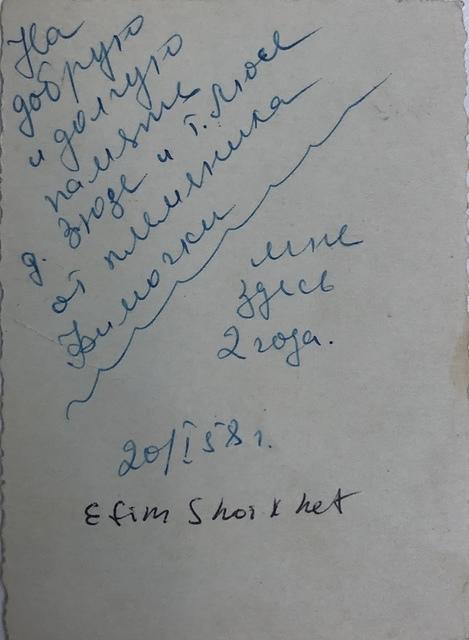 На
добрую
и долгую
память
д. Зюзе и т. Люсе
от племянника
Фимочки
мне
здесь
2 года.
20/I 58 г.
Efim Shoikhet